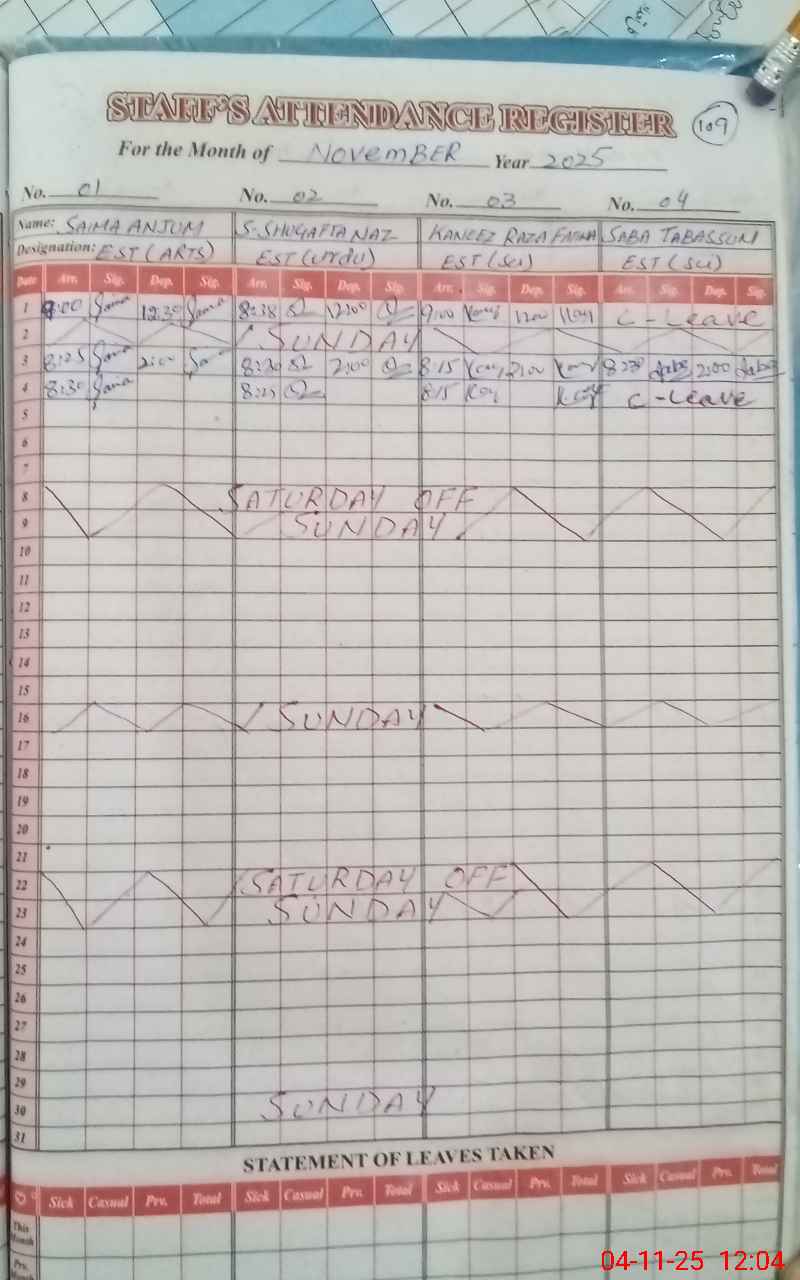 STAFF'S ATTENDANCE REGISTER 109
For the Month of NOVEMBER Year 2025
No. 01 No. 02 No. 03 No. 04
Name: SAIMA ANJUM S. SHUGAFTA NAZ KANEEZ RAZA FATMA SABA TABASSUM
Designation: EST (ARTS) EST (Urdu) EST (Sci) EST (Sci)
Date Arr. Sig. Dep. Sig. Arr. Sig. Dep. Sig. Arr. Sig. Dep. Sig. Arr. Sig. Dep. Sig.
1 9:00 Saima 12:30 Saima 8:38 12:00 9:00 1200 C-Leave
2 SUNDAY
3 8:25 Saima 2:00 8:20 2:00 8:15 2:00 8:230 Saba 2:00 Saba
4 8:30 Saima 8:25 8:15 C-Leave
5
6
7
8 SATURDAY OFF
9 SUNDAY
10
11
12
13
14
15
16 SUNDAY
17
18
19
20
21
22 SATURDAY OFF
23 SUNDAY
24
25
26
27
28
29
30 SUNDAY
31
STATEMENT OF LEAVES TAKEN
Sick Casual Prv. Total Sick Casual Prv. Total Sick Casual Prv. Total Sick Casual Prv. Total
This Month
Prv. Month
04-11-25 12:04